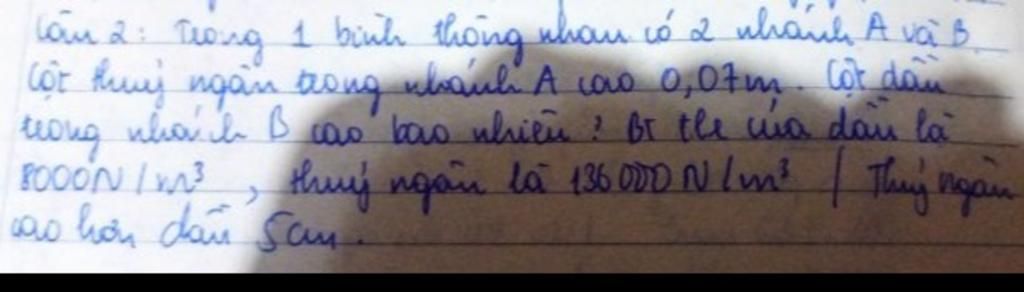 Câu 2: Trong 1 bình thông nhau có 2 nhánh A và B
Cột thuỷ ngân trong nhánh A cao 0,07m. Cột dầu
trong nhánh B cao bao nhiêu? BT tlr của dầu là
8000N/m³, thuỷ ngân là 136000N/m³ / Thuỷ ngân
cao hơn dầu 5cm.